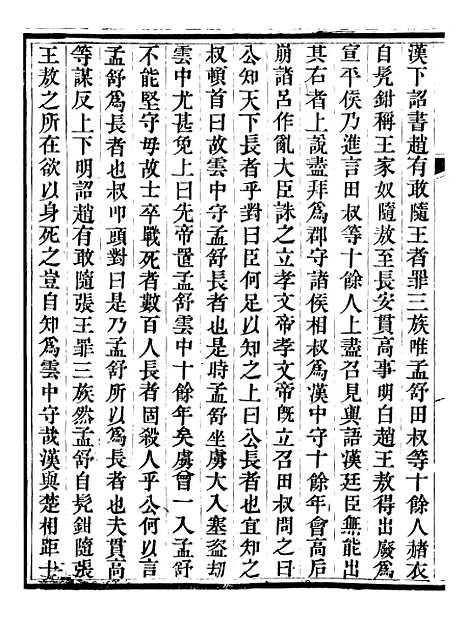 漢下詔書趙有敢隨王者罪三族唯孟舒田叔等十餘人赭衣
自髠鉗稱王家奴隨敖至長安貫高事明白趙王敖得出廢爲
宣平侯乃進言田叔等十餘人上盡召見與語漢廷臣無能出
其右者上說盡拜爲郡守諸侯相叔爲漢中守十餘年會高后
崩諸呂作亂大臣誅之立孝文帝孝文帝旣立召田叔問之曰
公知天下長者乎對曰臣何足以知之上曰公長者也宜知之
叔頓首曰故雲中守孟舒長者也是時孟舒坐虜大入塞盜劫
雲中尤甚免上曰先帝置孟舒雲中十餘年矣虜曾一入孟舒
不能堅守毋故士卒戰死者數百人長者固殺人乎公何以言
孟舒爲長者也叔叩頭對曰是乃孟舒所以爲長者也夫貫高
等謀反上下明詔趙有敢隨張王罪三族然孟舒自髠鉗隨張
王敖之所在欲以身死之豈自知爲雲中守哉漢與楚相距士